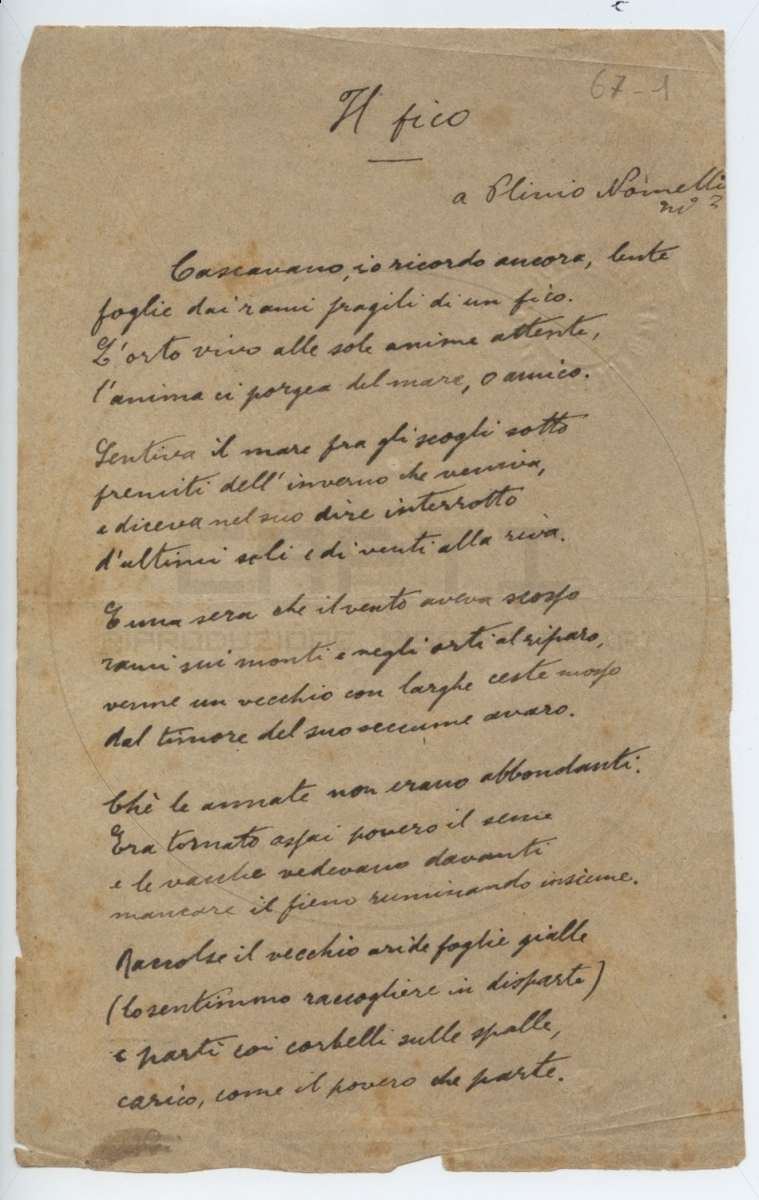 67-1
Il fico
a Plinio Nomelli
Cascavano, io ricordo ancora, lente
foglie dai rami fragili di un fico.
L'orto vivo alle sole anime attente,
l'anima ci porgea del mare, o amico.
Sentiva il mare fra gli scogli sotto
fremiti dell'inverno che veniva,
e diceva nel suo dire interrotto
d'ultimi soli e di venti alla riva.
E una sera che il vento aveva scosso
rami sui monti e negli orti al riparo,
venne un vecchio con larghe ceste mosso
dal timore del suo seccume avaro.
Chè le annate non erano abbondanti.
Era tornato assai povero il seme
e le vacche vedevano davanti
mancare il fieno ruminando insieme.
Raccolse il vecchio aride foglie gialle
(lo sentimmo raccogliere in disparte)
e partì coi corbelli sulle spalle,
carico, come il povero che parte.